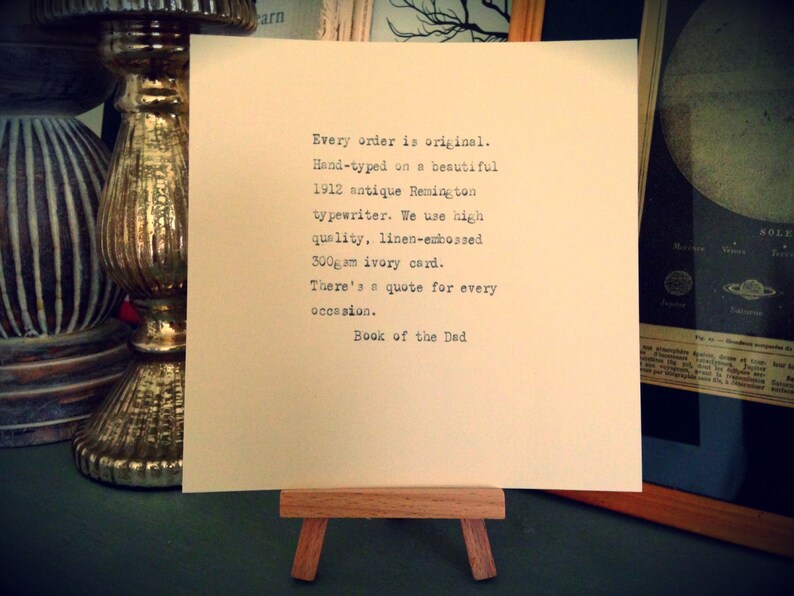 earn
Every order is original.
Hand-typed on a beautiful
1912 antique Remington
typewriter. We use high
quality, linen-embossed
300gsm ivory card.
There's a quote for every
occasion.
Book of the Dad
SOLE
Mercure Vénus Terre
Jupiter Saturne